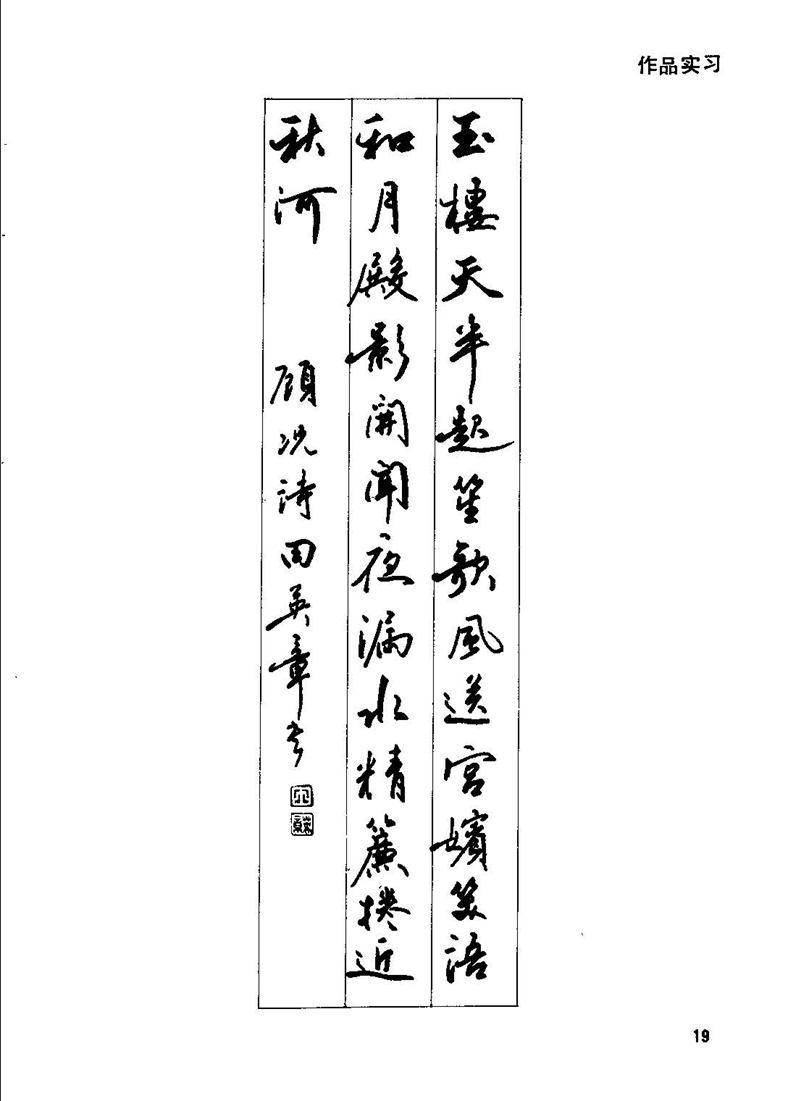 作品实习
玉樓天半起笙歌風送宮嬪笑語
和月殿影開聞夜漏水精簾捲近
秋河
顧况詩田英章书
19